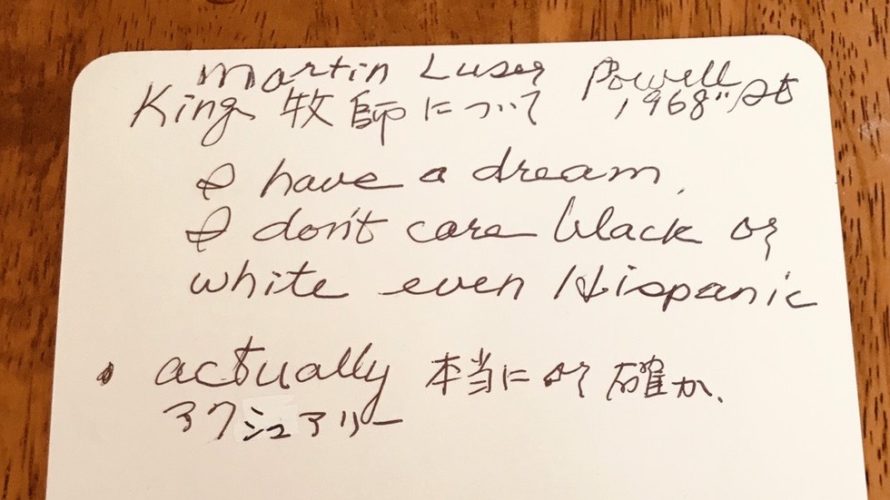 Martin Luser Powell
King 牧師について 1968"
I have a dream.
I don't care black or
white even Hispanic
• actually 本当に or 確か、
アクシュアリー